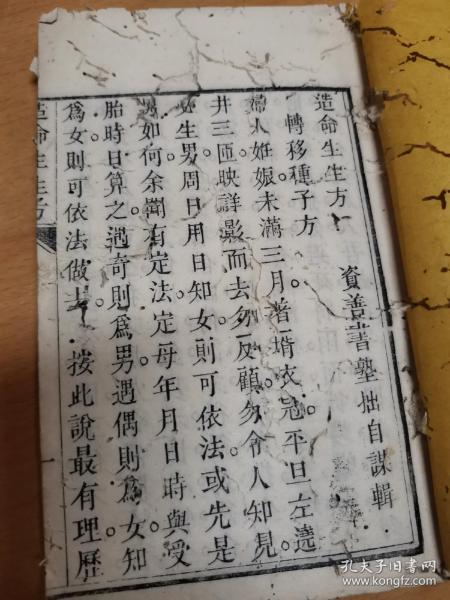 造命生生方
資善書塾拙自謀輯
一轉移種子方
婦人姙娠未滿三月。着壻衣冠。平旦左遶
井三匝映詳影而去勿反顧勿令人知見
必生男。周日用日知女則可依法或先是
男如何余聞有定法定母年月日時與受
胎時日算之遇奇則爲男遇偶則爲女知
爲女則可依法做去。按此說最有理歷
造命生生方
孔夫子旧书网
www.kongfz.com